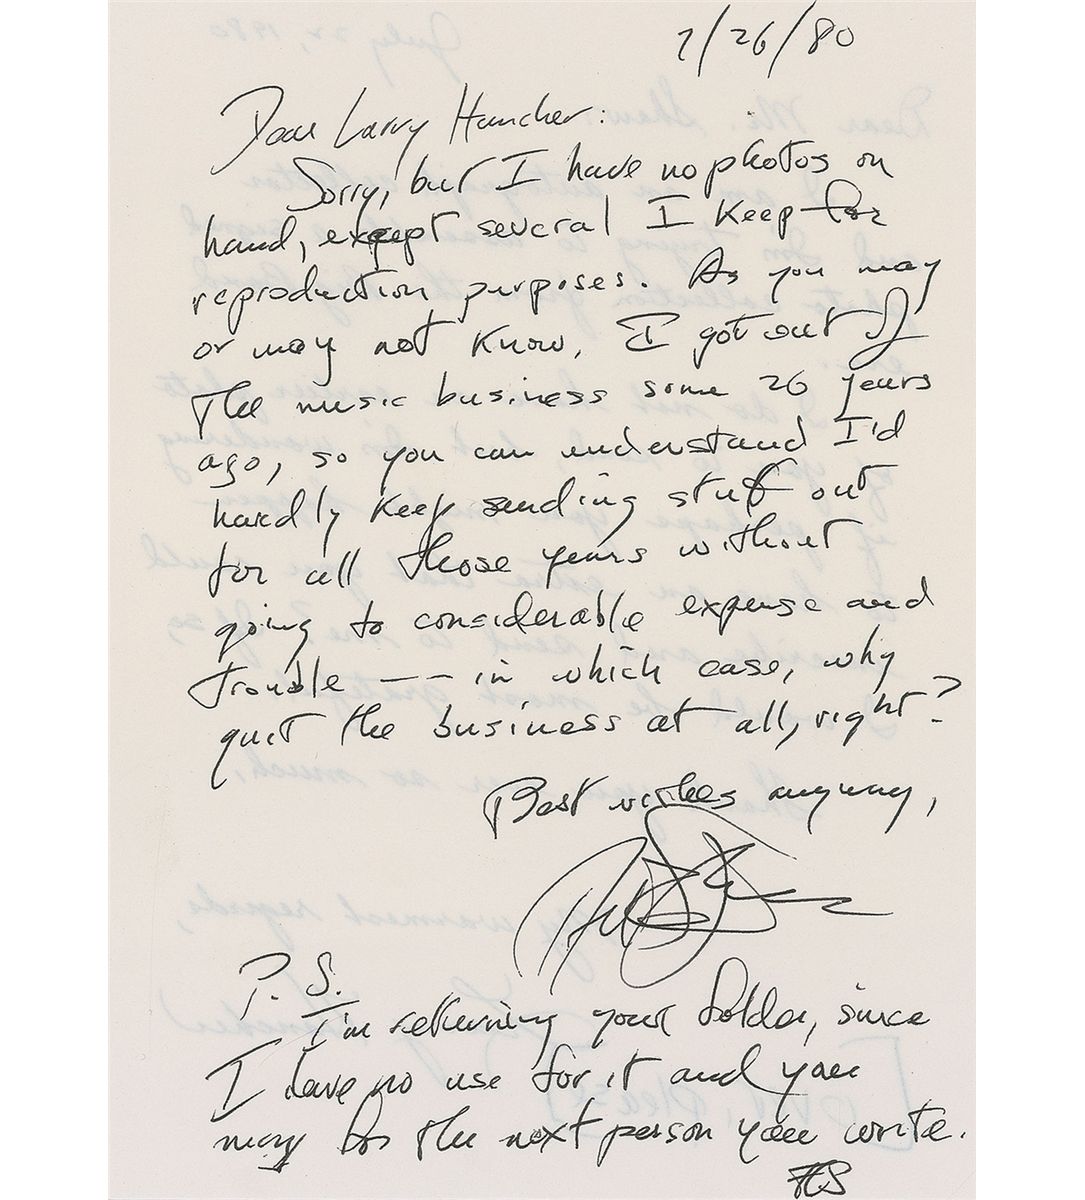 7/26/80
Dear Larry Hancher:
Sorry, but I have no photos on
hand, except several I keep for
reproduction purposes. As you may
or may not know, I got out of
the music business some 26 years
ago, so you can understand I'd
hardly keep sending stuff out
for all those years without
going to considerable expense and
trouble -- in which case, why
quit the business at all, right?
Best wishes anyway,
P.S.
I'm returning your folder, since
I have no use for it and you
may for the next person you write.
AS